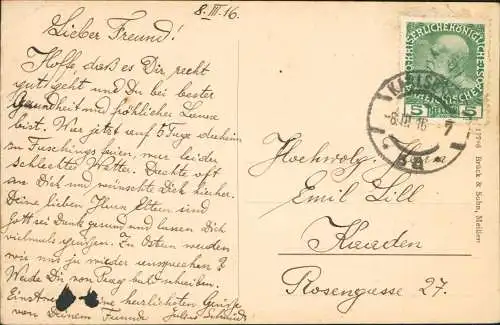 8. III. 16.
Lieber Freund!
Hoffe, daß es Dir recht
gut geht und Du bei bester
Gesundheit und fröhlicher Laune
bist. War jetzt auf 5 Tage daheim
zu Faschingsfeiern, nur leider
schlechtes Wetter. Dachte oft
an Dich und wünschte Dich hierher.
Deine lieben Eltern sind
Gott sei Dank gesund und lassen Dich
vielmals grüßen. Zu Ostern werden
wie uns ja wieder
Werde Dir von Prag bald schreiben.
die herzlichsten Grüße
von Deinem Freunde Julius
KAISERLICHE KÖNIGLICHE
5 5
-6. III. 16 - 7
5a
Hochwolg. Herrn
Emil Lill
Kaaden
Rosengasse 27.
Brück & Sohn, Meißen